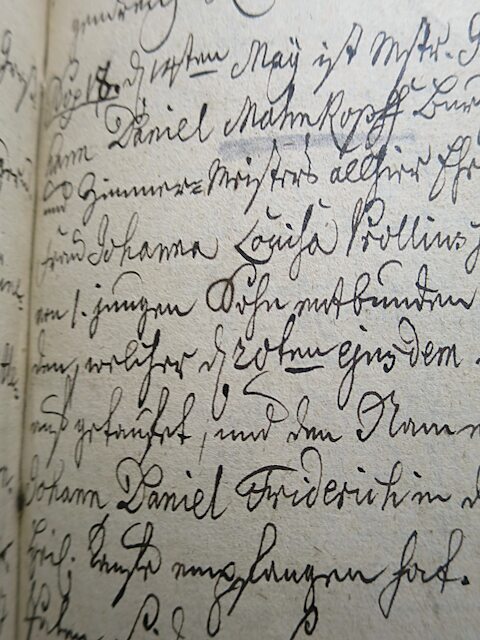 den 19ten May ist Mstr.
hann Daniel Mohnkopff Bur
und Zimmer-Meisters allhier Ehe
frau Johanna Louisa Krollin
von 1. jungen Sohn entbunden
den, welcher d 20ten ejusdem
auß getaufet, und den Namen
Johann Daniel Friderich in d
heil. Taufe empfangen hat.